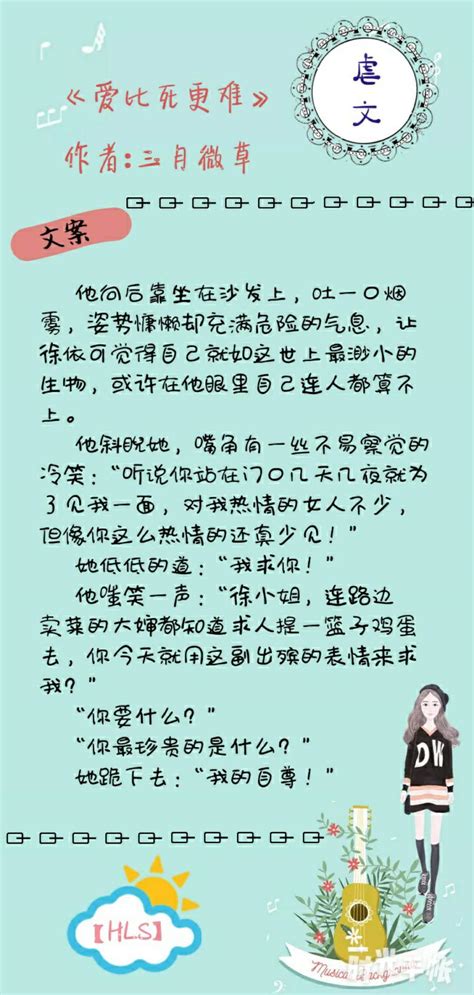 虐
文
《爱比死更难》
作者:三月微草
文案
他向后靠坐在沙发上，吐一口烟
雾，姿势慵懒却充满危险的气息，让
徐依可觉得自己就如这世上最渺小的
生物，或许在他眼里自己连人都算不
上。
他斜睨她，嘴角有一丝不易察觉的
冷笑：“听说你站在门口几天几夜就为
了见我一面，对我热情的女人不少，
但像你这么热情的还真少见！”
她低低的道：“我求你！”
他嗤笑一声：“徐小姐，连路边
卖菜的大婶都知道求人提一篮子鸡蛋
去，你今天就用这副出殡的表情来求
我？”
“你要什么？”
“你最珍贵的是什么？”
她跪下去：“我的自尊！”
DW
【HLS】
Musical